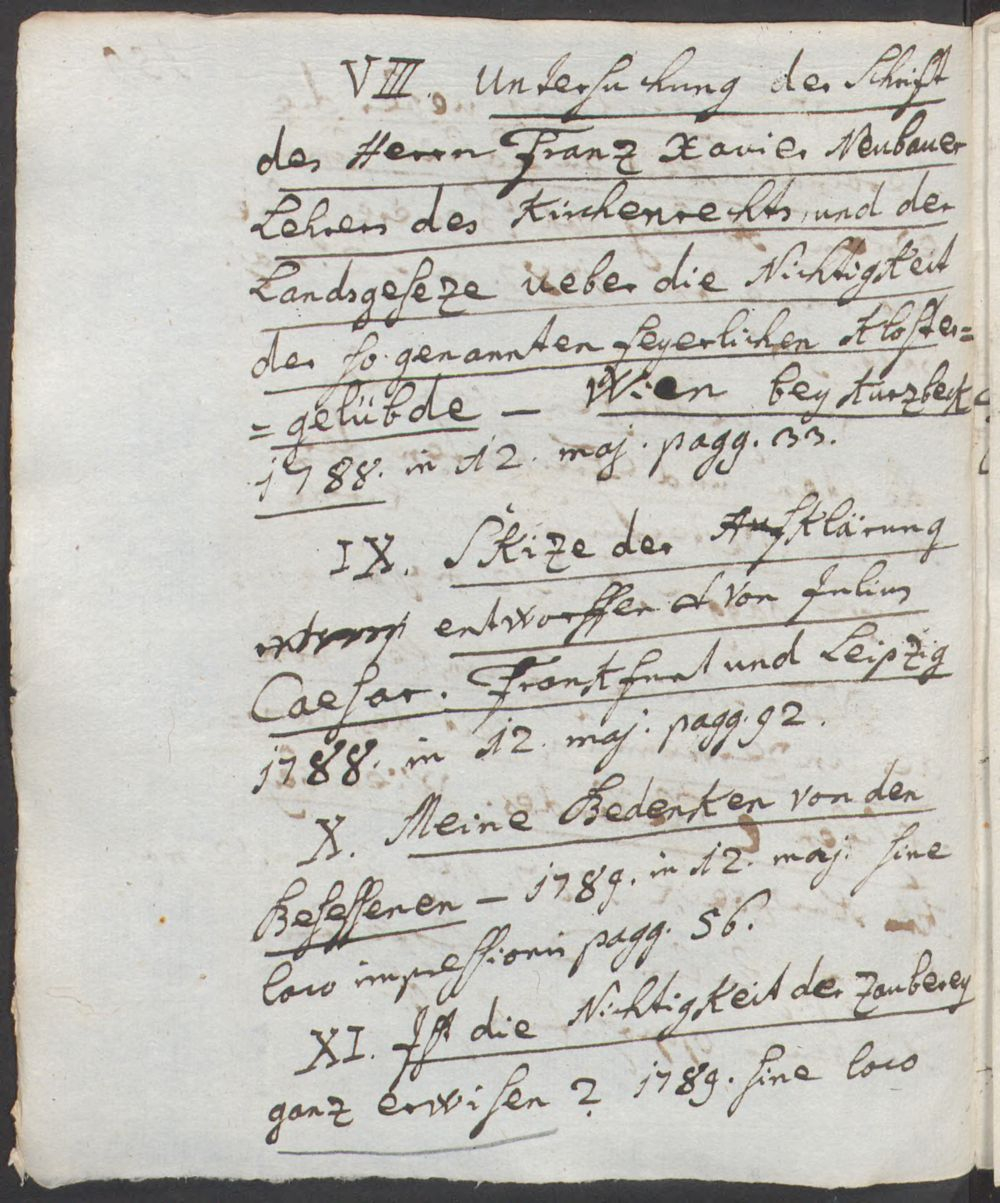 VIII. Untersuchung der Schrift
des Herrn Franz Xavier Neubauer
Lehrers des Kirchenrechts, und der
Landsgeseze ueber die Nichtigkeit
der so genannten feyerlichen Kloster=
=gelübde — Wien bey Kurzbeck
1788. in 12. maj. pagg. 33.
IX. Skize der Aufklärung
entworffen von Julius
Caesar. Frankfurt und Leipzig
1788. in 12. maj. pagg. 92.
X. Meine Bedenken von den
Besessenen — 1789. in 12. maj. sine
loco impressionis pagg. 56.
XI. Ist die Nichtigkeit der Zauberey
ganz erwisen? 1789. sine loco